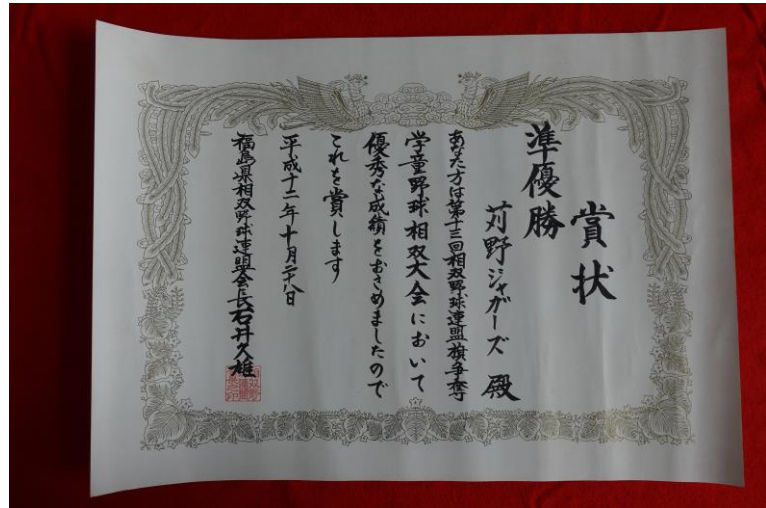 賞状
準優勝
苅野ジャガーズ 殿
あなた方は第十三回相双野球連盟旗争奪
学童野球相双大会において
優秀な成績をおさめましたので
これを賞します
平成十二年十月二十八日
福島県相双野球連盟会長石井久雄